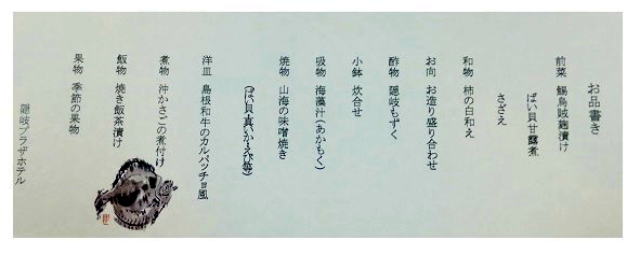 お品書き
前菜 鯣烏賊麹漬け
ばい貝甘露煮
さざえ
和物 柿の白和え
お向 お造り盛り合わせ
酢物 隠岐もずく
小鉢 炊合せ
吸物 海藻汁(あかもく)
焼物 山海の味噌焼き
(ばい貝・真いか・えび等)
洋皿 島根和牛のカルパッチョ風
煮物 沖かさごの煮付け
飯物 焼き飯茶漬け
果物 季節の果物
隠岐プラザホテル